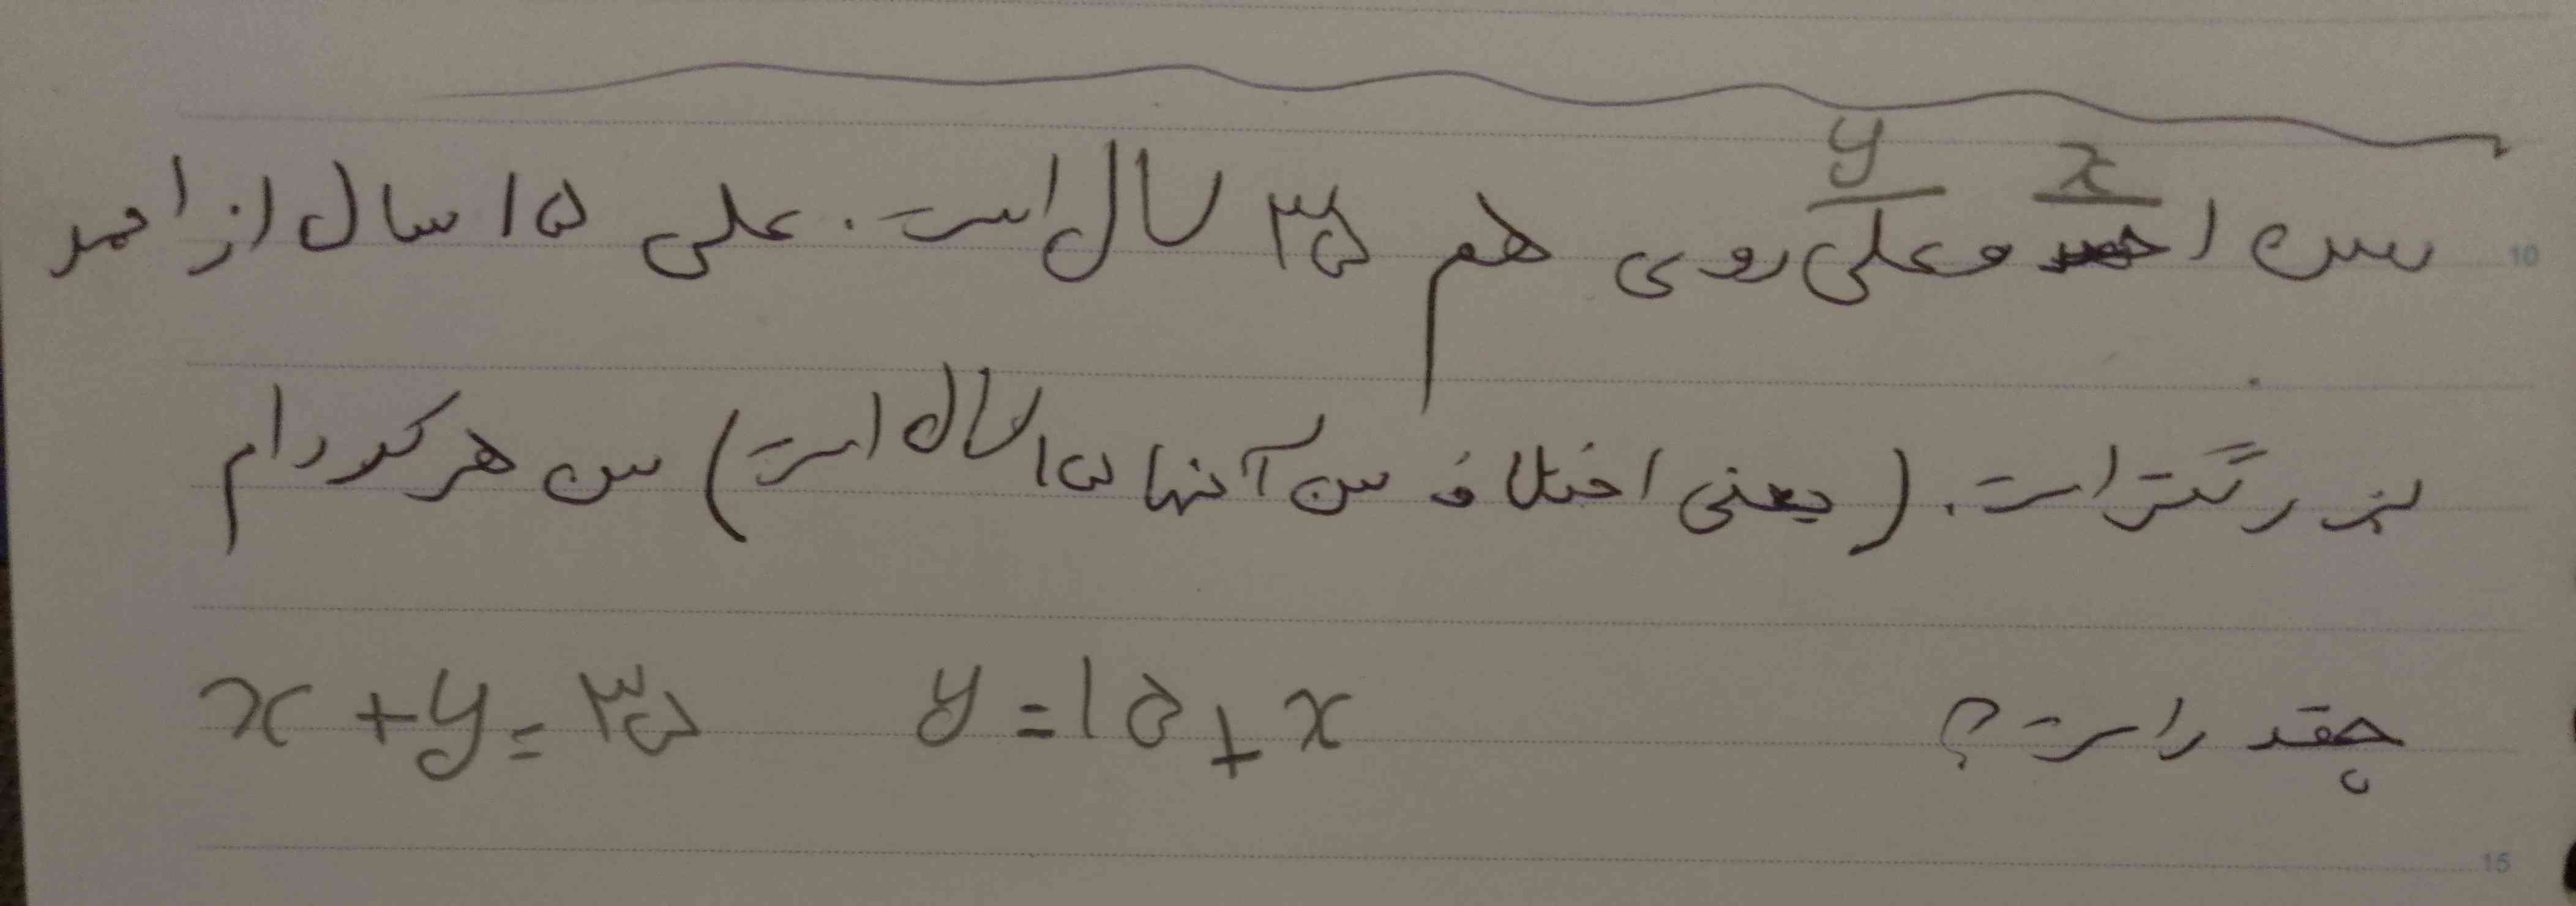 y x
سن احمد وعلی روی هم ۳۵ سال است. علی ۱۵ سال از احمد
بزرگتر است. (یعنی اختلاف سن آنها ۱۵ سال است) سن هر کدام
چقدر است؟
x + y = ۳۵ y = ۱۵ + x
10
15